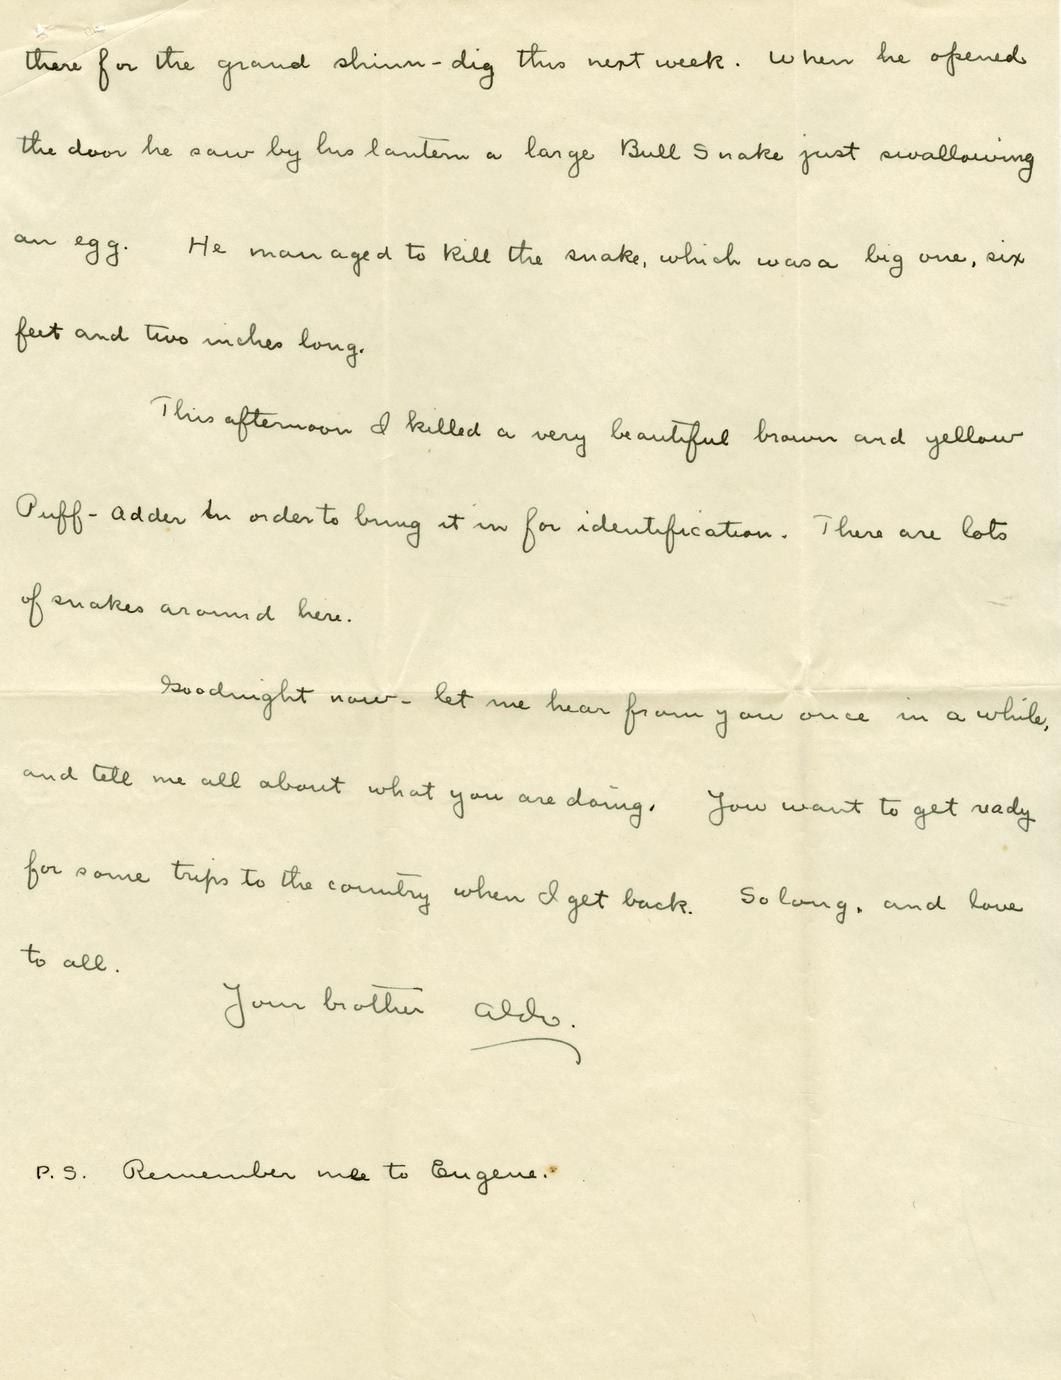 there for the grand shinn-dig this next week. When he opened
the door he saw by his lantern a large Bull Snake just swallowing
an egg. He managed to kill the snake, which was a big one, six
feet and two inches long.
This afternoon I killed a very beautiful brown and yellow
Puff-adder in order to bring it in for identification. There are lots
of snakes around here.
Goodnight now - let me hear from you once in a while,
and tell me all about what you are doing. You want to get ready
for some trips to the country when I get back. So long, and love
to all.
Your brother Aldo.
P.S. Remember me to Eugene.